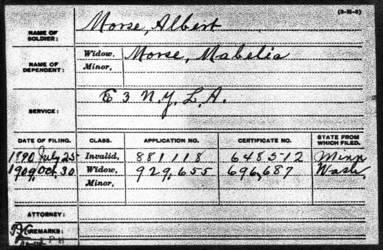 (3-M-6)
NAME OF SOLDIER: Morse, Albert
NAME OF DEPENDENT: Widow, Morse, Mabelia
Minor,
SERVICE: E 3 N.Y. L.A.
DATE OF FILING. CLASS. APPLICATION NO. CERTIFICATE NO. STATE FROM WHICH FILED.
1890 July 25 Invalid, 881118 648512 Minn
1909, Oct. 30 Widow, 929,655 696,687 Wash.
Minor,
ATTORNEY:
REMARKS: